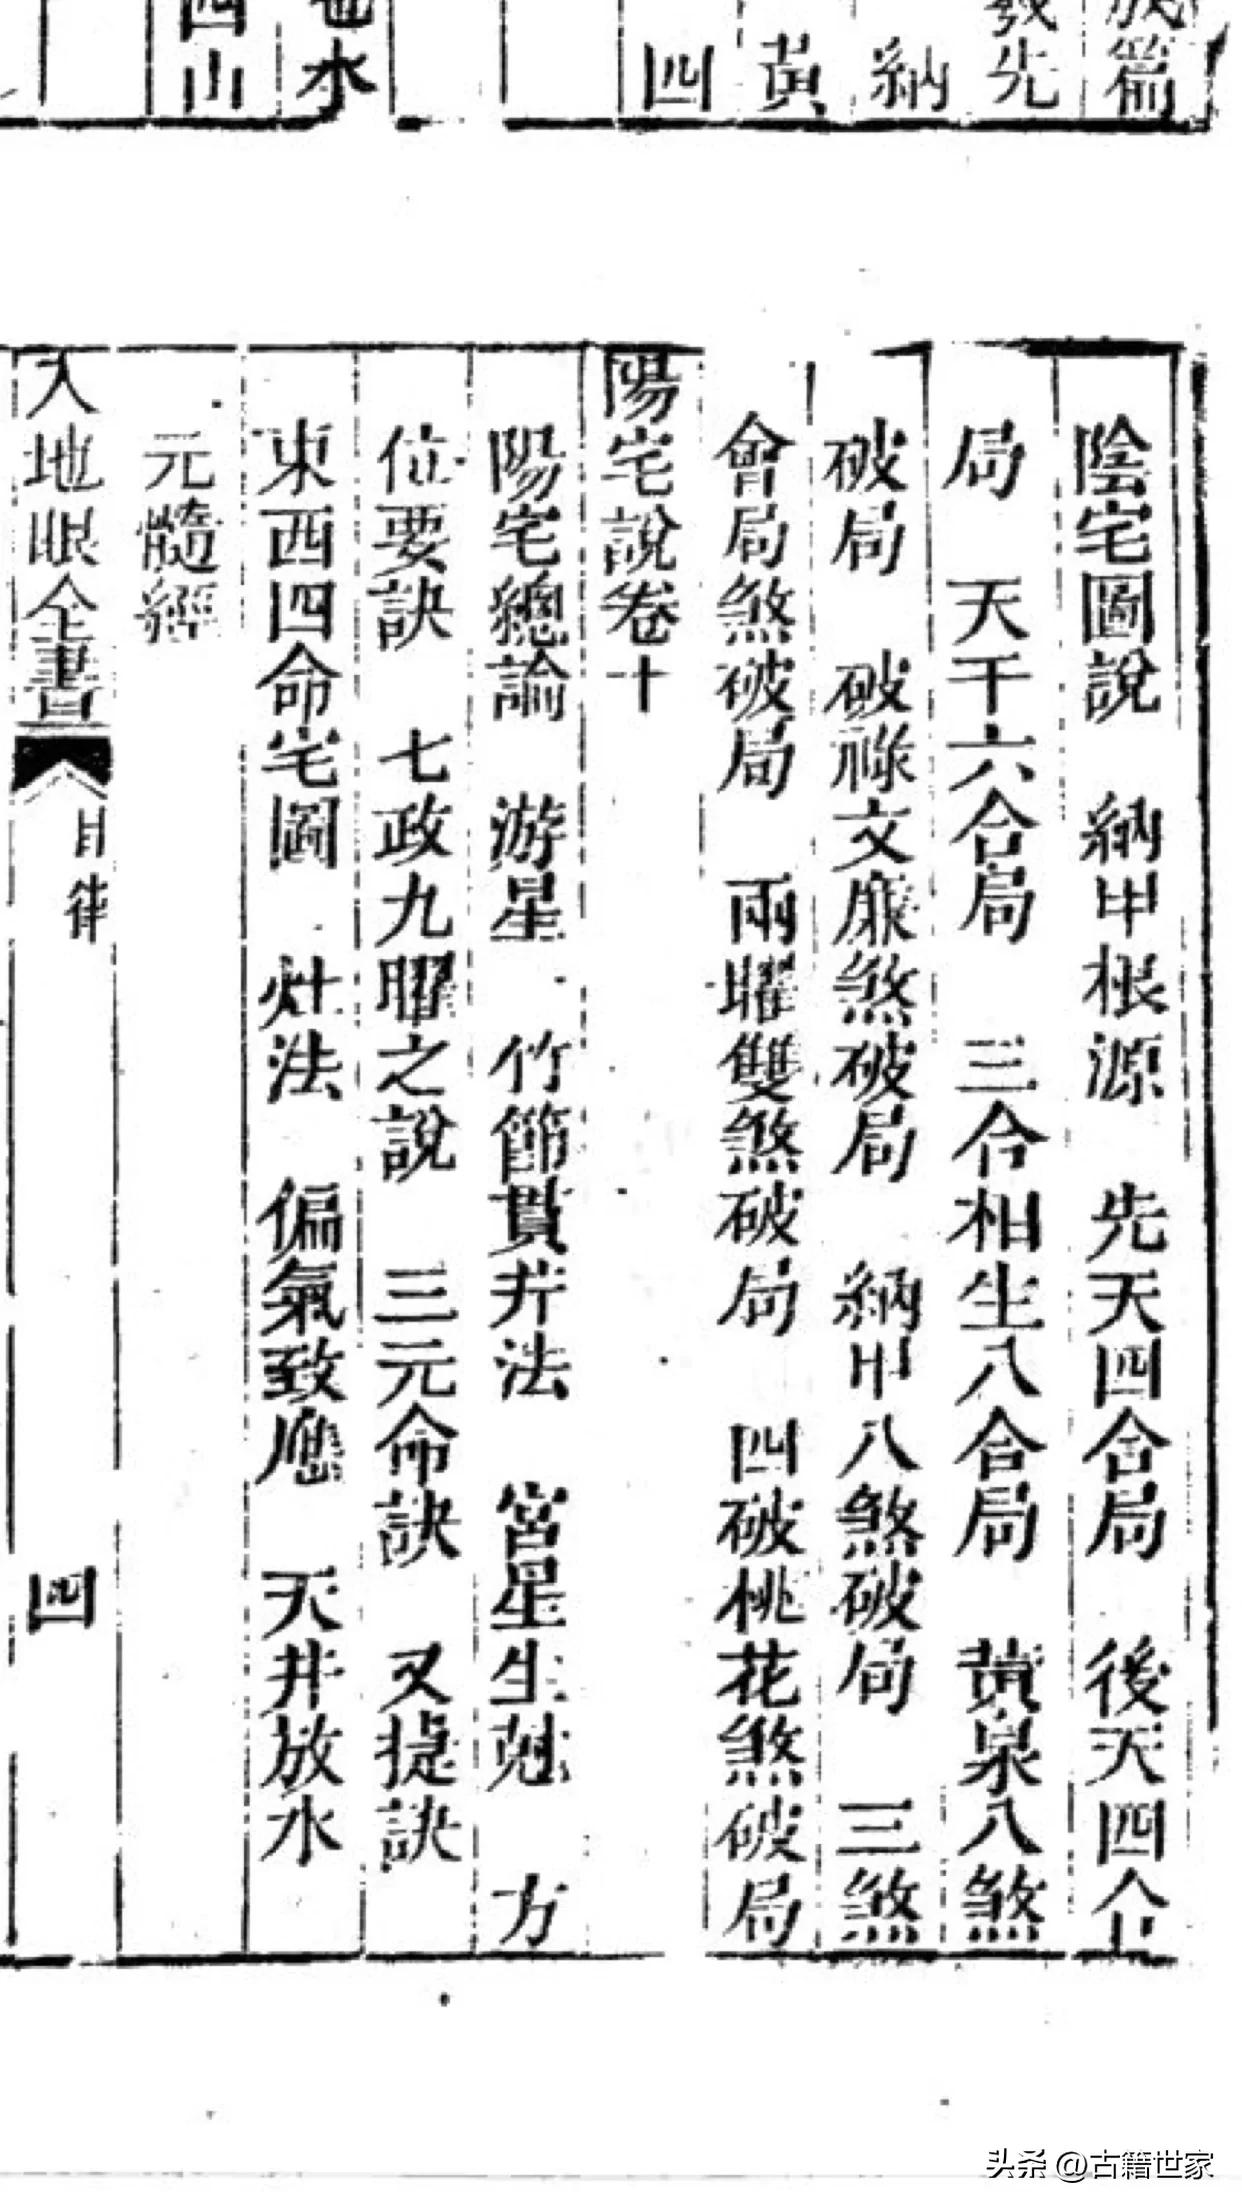 篇
先
納
黃
四
水
四山
陰宅圖說　納甲根源　先天四合局　後天四合
局　天干六合局　三合相生八合局　黃泉八煞
破局　破祿文廉煞破局　納甲八煞破局　三煞
會局煞破局　兩曜雙煞破局　四破桃花煞破局
陽宅說卷十
陽宅總論　游星　竹節貫井法　宮星生剋　方
位要訣　七政九曜之說　三元命訣　又捷訣
東西四命宅圖　灶法　偏氣致應　天井放水
元髓經
入地眼全書　目錄　四
头条 @古籍世家